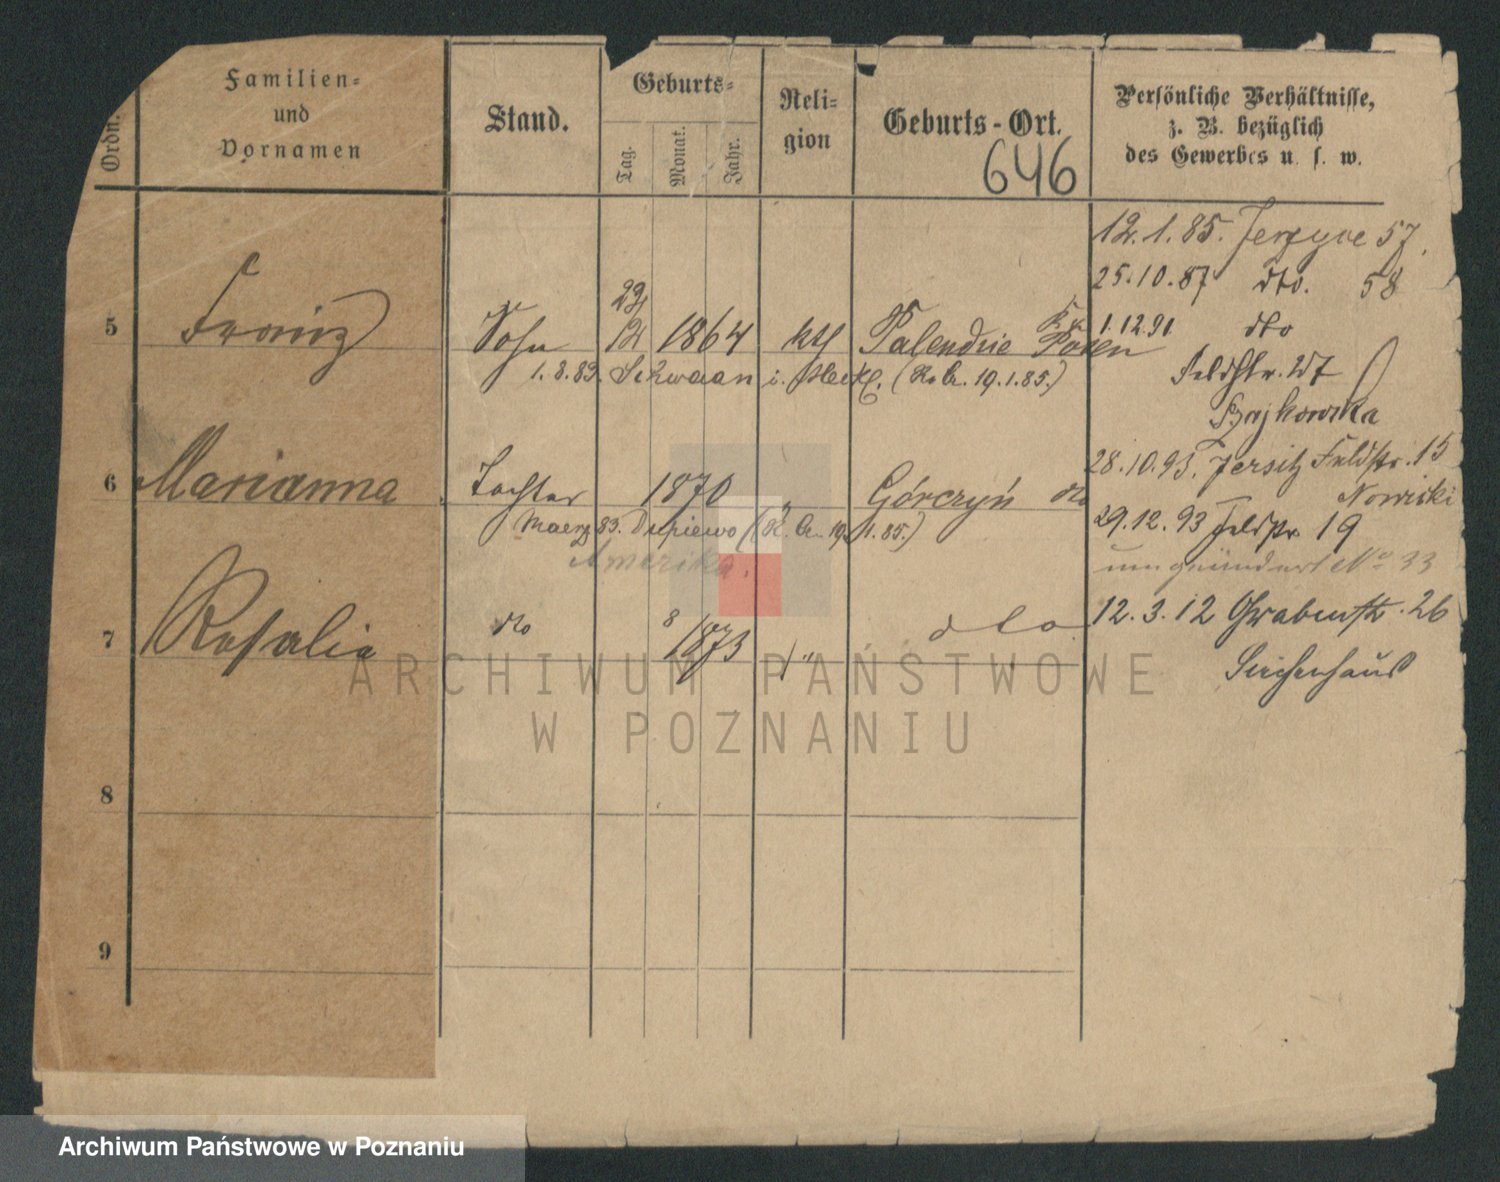 Ordn.
Familien-
und
Vornamen
Stand.
Geburts-
Tag.
Monat.
Jahr.
Reli-
gion
Geburts-Ort.
646
Persönliche Verhältnisse,
z. B. bezüglich
des Gewerbes u. s. w.
12.1.85. Jerzyce 57.
25.10.87 dto. 58
5 Franz Sohn 1864 kth Palendzie Posen
1.12.91 dto
Feldstr. 27
1.8.83. Schwaan i. Meckl. (19.1.85.)
Szajkowska
6 Marianna Tochter 1870 " Górczyń dto
28.10.93. Jersitz Feldstr. 15
Nowicki
Maerz 83. Dupiewo (1.85.)
29.12.93 Feldstr. 19
Amerika.
umgeändert No 33
7 Rosalie dto 8 1873 " dto
12.3.12 Grabenstr. 26
Siechenhaus
8
9
ARCHIWUM PAŃSTWOWE
W POZNANIU
Archiwum Państwowe w Poznaniu